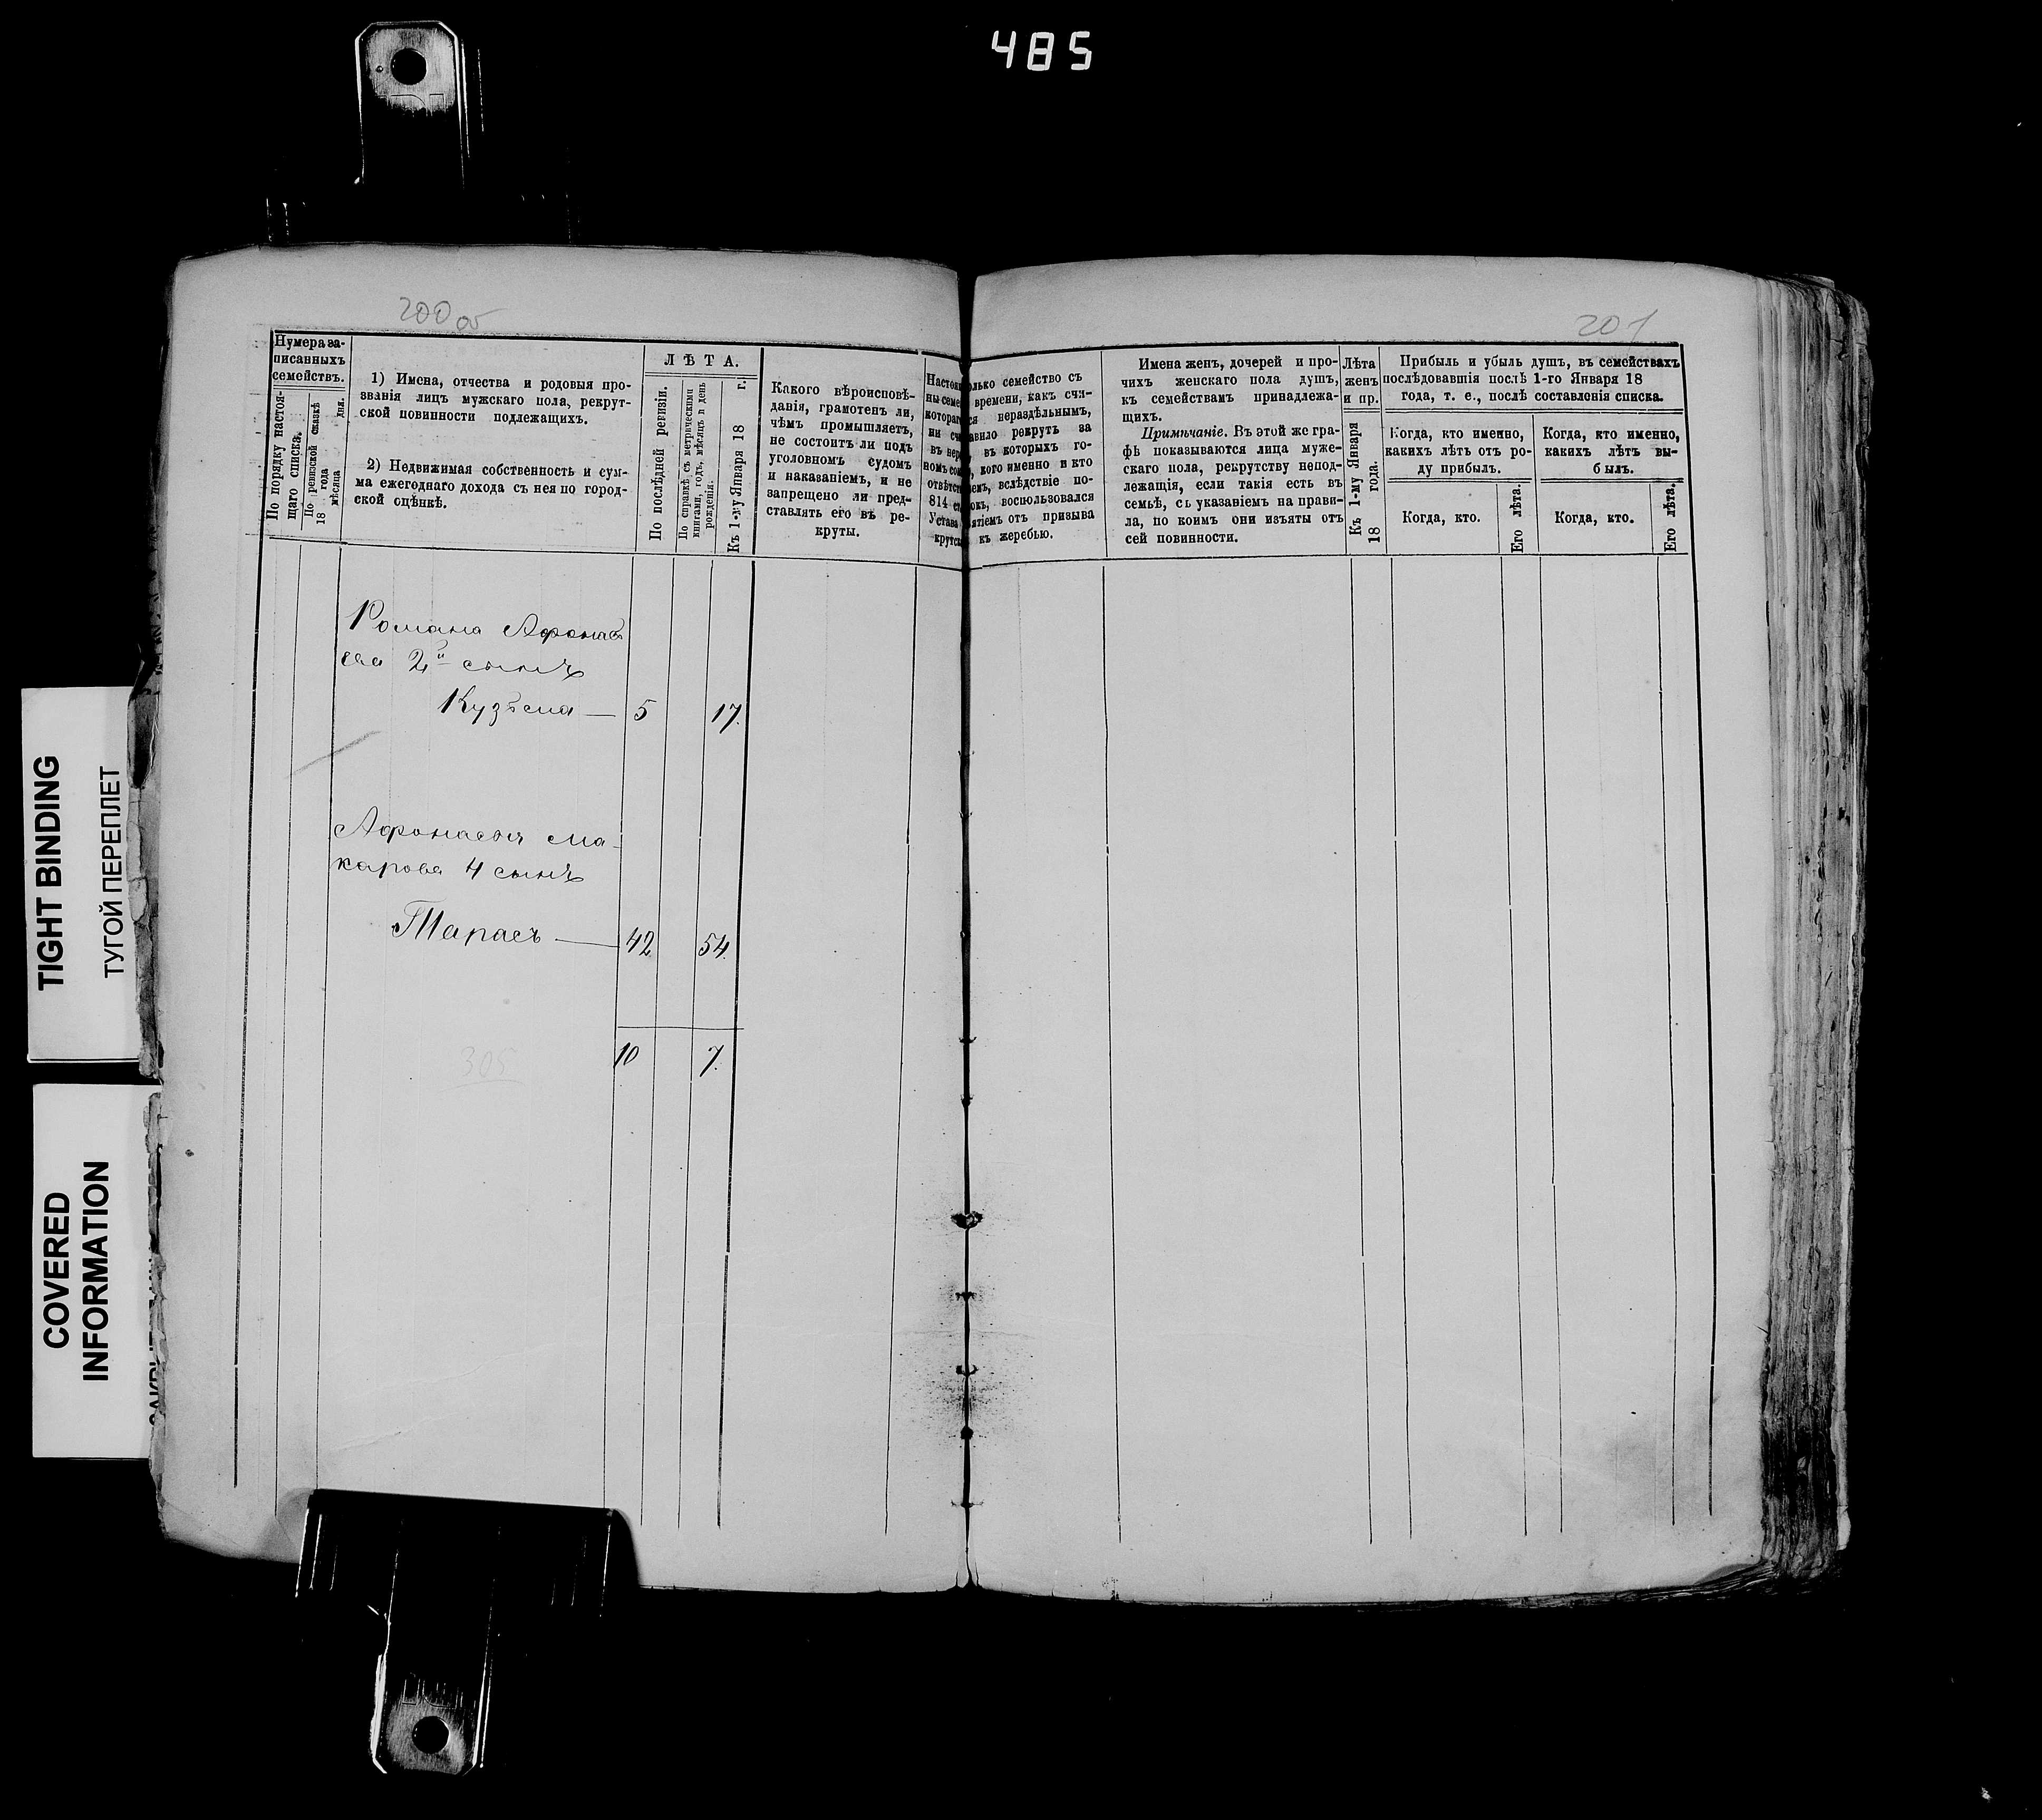 485
TIGHT BINDING
ТУГОЙ ПЕРЕПЛЕТ
COVERED
INFORMATION
200 об
Нумера за-
писанныхъ
семействъ.
По порядку настоя-
щаго списка.
По ревизской сказкѣ
18 года
мѣсяца дня.
1) Имена, отчества и родовыя про-
званія лицъ мужскаго пола, рекрут-
ской повинности подлежащихъ.
2) Недвижимая собственность и сум-
ма ежегоднаго дохода съ нея по город-
ской оцѣнкѣ.
ЛѢТА.
По послѣдней ревизіи.
По справкѣ съ метрическими
книгами, годъ, мѣсяцъ и день
рожденія.
Къ 1-му Января 18 г.
Какого вѣроисповѣ-
данія, грамотенъ ли,
чѣмъ промышляетъ,
не состоитъ ли подъ
уголовномъ судомъ
и наказаніемъ, и не
запрещено ли пред-
ставлять его въ ре-
круты.
814
Устава
Романа Афонась
ева 2й сынъ
Кузьма — 5 17.
Афонасья Ма-
карова 4 сынъ
Тарасъ — 42 54.
10 7.
305
201
олько семейство съ
времени, какъ счи-
ся нераздѣльнымъ,
авило рекрутъ за
въ которыхъ го-
кого именно и кто
вслѣдствіе по-
воспользовался
ятіемъ отъ призыва
къ жеребью.
Имена женъ, дочерей и про-
чихъ женскаго пола душъ,
къ семействамъ принадлежа-
щихъ.
Примѣчаніе. Въ этой же гра-
фѣ показываются лица муже-
скаго пола, рекрутству непод-
лежащія, если такія есть въ
семьѣ, съ указаніемъ на прави-
ла, по коимъ они изъяты отъ
сей повинности.
Лѣта
женъ
и пр.
Къ 1-му Января
18 года.
Прибыль и убыль душъ, въ семействахъ
послѣдовавшія послѣ 1-го Января 18
года, т. е., послѣ составленія списка.
Когда, кто именно,
какихъ лѣтъ отъ ро-
ду прибылъ.
Когда, кто.
Его лѣта.
Когда, кто именно,
какихъ лѣтъ вы-
былъ.
Когда, кто.
Его лѣта.